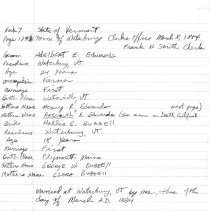 Book 7 State of Vermont
Page 129 Town of Waterbury Clerks Office March 8, 1884
Frank N. Smith Clerk
Groom Adelbert E. Edwards
Residence Waterbury Vt.
Age 24 years
Occupation Farmer
Marriage First
Birth Place Waterville, Vt
Fathers Name Henry R. Edwards next page)
Mothers Name B. Edwards
Bride Nellie E. Burrell
Residence Waterbury, Vt
Age 18 years
Marriage First
Birth Place Plymouth Maine
Fathers Name George W. Burrell
Mothers Name Burrell
Married at Waterbury, Vt by me, this 9th
day of March A.D. 1884